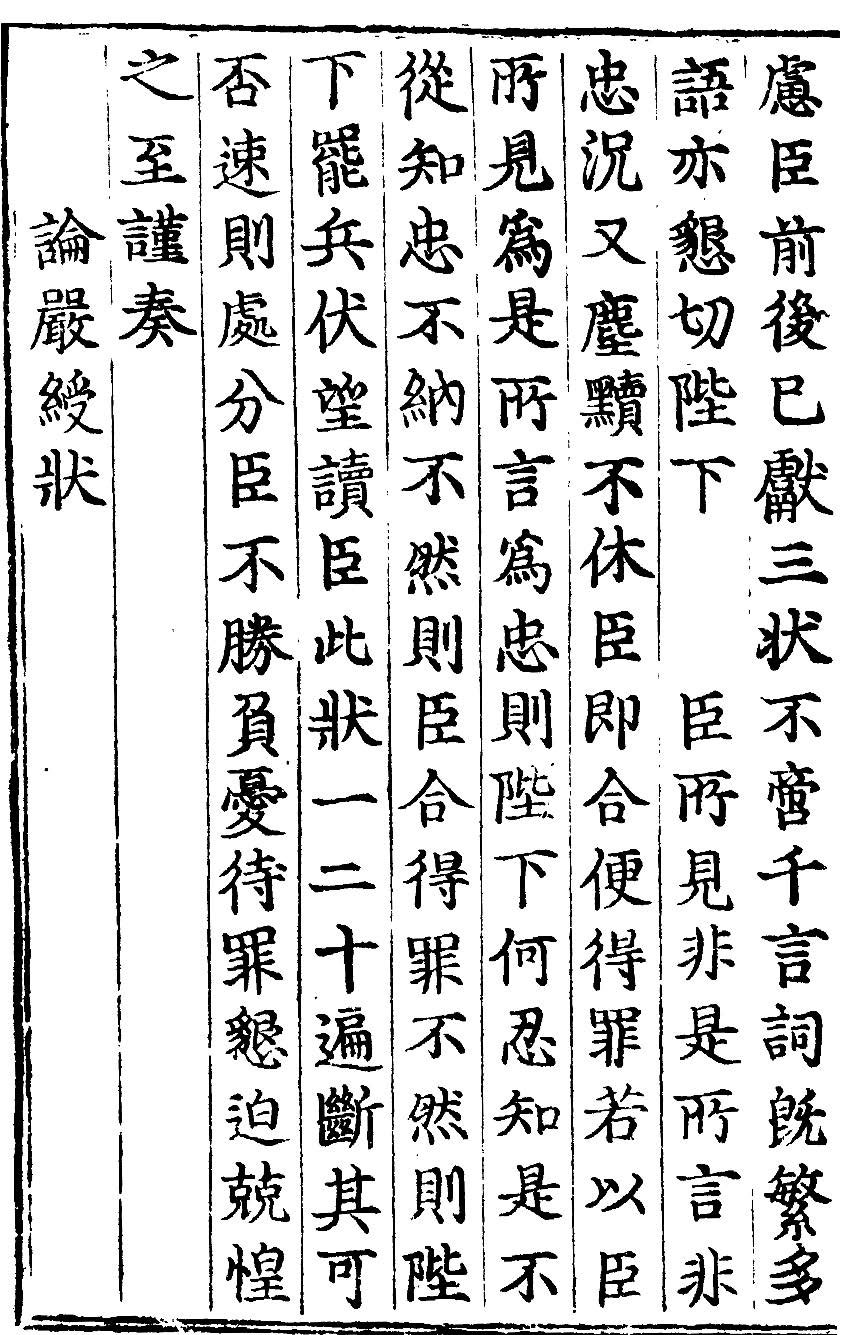 慮臣前後已獻三狀不啻千言詞既繁多
語亦懇切陛下 臣所見非是所言非
忠況又塵黷不休臣即合便得罪若以臣
所見爲是所言爲忠則陛下何忍知是不
從知忠不納不然則臣合得罪不然則陛
下罷兵伏望讀臣此狀一二十遍斷其可
否速則處分臣不勝負憂待罪懇迫兢惶
之至謹奏
論嚴綬狀